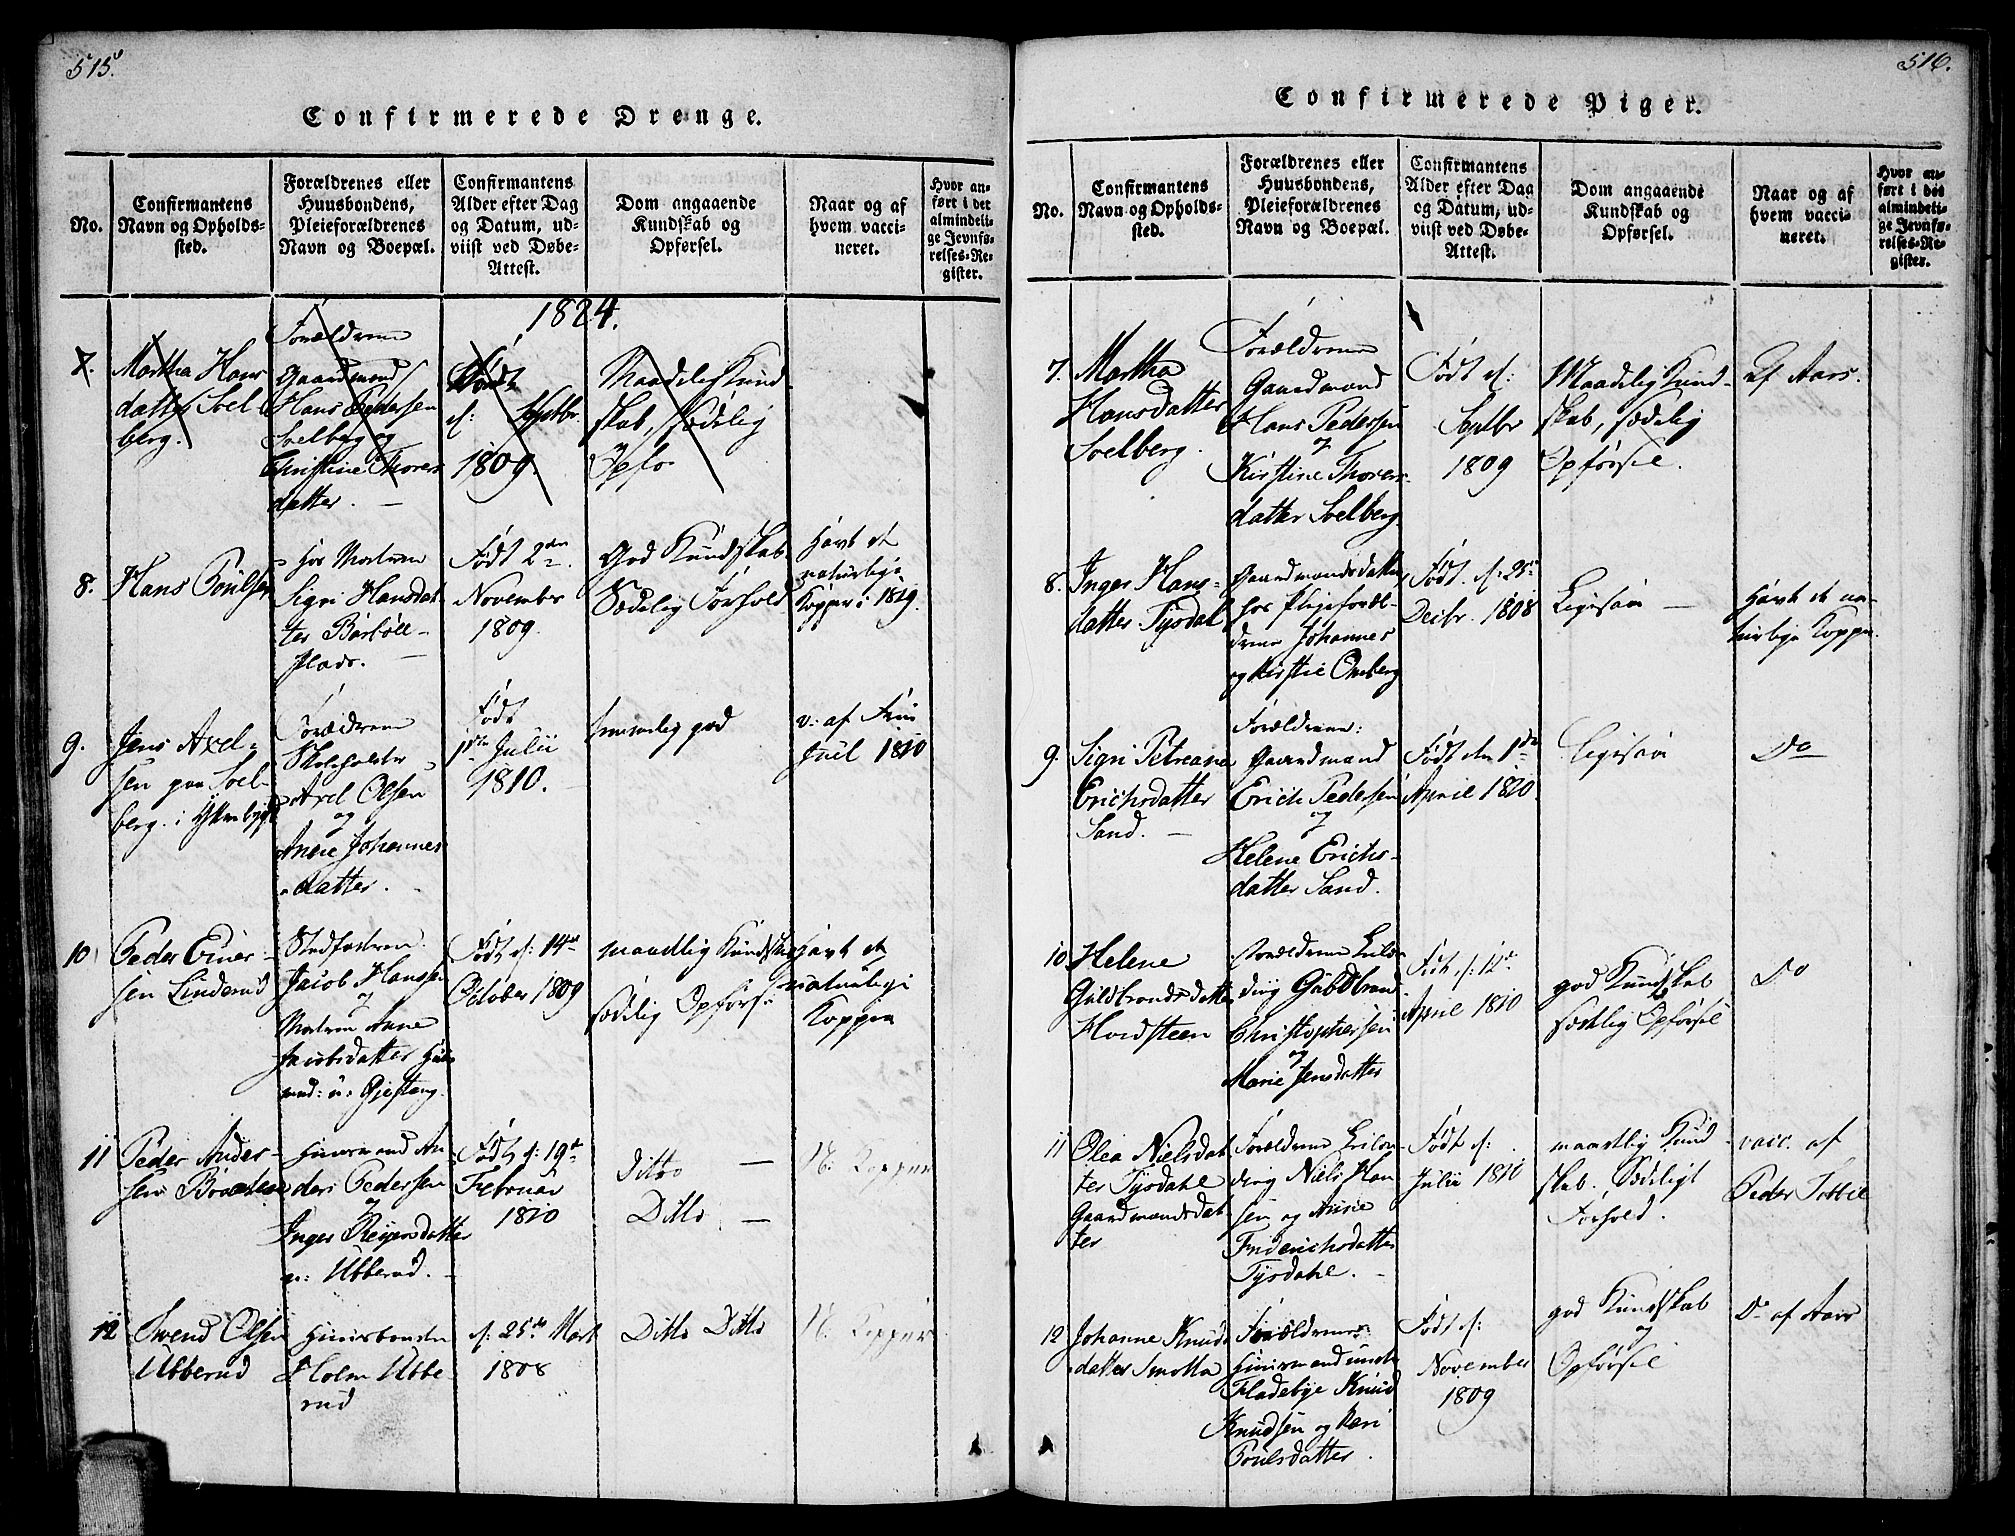 515.
Confirmerede Drenge.
No.
Confirmantens
Navn og Opholds-
sted.
Forældrenes eller
Huusbondens,
Pleieforældrenes
Navn og Boepæl.
Confirmantens
Alder efter Dag
og Datum, ud-
viist ved Døbe-
Attest.
Dom angaaende
Kundskab og
Opførsel.
Naar og af
hvem vacci-
neret.
Hvor an-
ført i det
almindeli-
ge Jevnfø-
relses-Re-
gister.
1824.
7.
Martha Hans
datter Soel-
berg.
Forældrene
Gaardmand
Hans Pedersen
Soelberg og
Christine Thores
datter. —
Født
d: Septbr.
1809
Maadelig Kund
skab, sædelig
Opfø
8.
Hans Poulsen
hos Moderen
Sigri Hansdat-
ter
plads. —
Født 2den
November
1809.
God Kundskab
Sædelig Forhold
Havt de
naturlige
Kopper i 1819.
9.
Jens Axel-
sen paa Soel-
berg i
Forældrene
Skoleholder
Axel Olsen
og
Anne Johannes
datter.
Født
1ste Julii
1810.
temmelig god
v: af Frue
Juel 1810
10
Peder Einer-
sen Linderud
Stedfaderen
Jacob Hansen
og
Moderen Anne
Jacobsdatter
Gjestang.
Født d: 14de
October 1809
maadelig Kundskab
sædelig Opførsel
havt de
naturlige
Kopper
11
Peder Ander-
sen
Huusmand An-
ders Pedersen
og
Inger Reyersdatter
u: Ubberud. —
Født d: 19de
Februar
1810
Ditto —
Ditto —
N. Kopper
12
Svend Olsen
Ubberud
Huusbonden
Holm Ubbe-
rud
d: 25de Mart
1808
Ditto Ditto
N. Kopper
516.
Confirmerede Piger.
No.
Confirmantens
Navn og Opholds-
sted.
Forældrenes eller
Huusbondens,
Pleieforældrenes
Navn og Boepæl.
Confirmantens
Alder efter Dag
og Datum, ud-
viist ved Døbe-
Attest.
Dom angaaende
Kundskab og
Opførsel.
Naar og af
hvem vacci-
neret.
Hvor an-
ført i det
almindeli-
ge Jevnfø-
relses-Re-
gister.
7.
Martha
Hansdatter
Soelberg.
Forældrene
Gaardmand
Hans Pedersen
og
Kirstine Thores-
datter Soelberg
Født d:
Septbr
1809
Maadelig Kund-
skab, sædelig
Opførsel.
af Aars.
8.
Inger Hans-
datter Tysdal
Gaardmandsdatter
hos Plejeforæl-
drene Johannes
og Kirstie Omberg
Født d: 25de
Decbr. 1808
Ligesaa —
Havt de na-
turlige Kopper.
9.
Sigri Petreana
Erichsdatter
Sand. —
Forældrene:
Gaardmand
Erich Pedersen
og
Helene Erichs-
datter Sand.
Født den 1de
April 1810.
Ligesaa
Do
10
Helene
Guldbrandsdatter
Hvidsteen
Forældrene
Guldbrand
Christophersen
og
Marie Jensdatter
Født d: 12de
April 1810
god Kundskab
sædelig Opførsel
Do
11
Olea Nielsdat
ter Tysdahl
Gaardmandsdat
ter
Forældrene
Niels Han
sen og Anne
Friderichsdatter
Tysdahl. —
Født d:
Julii 1810
maadelig Kund
skab. Sædeligt
Forhold.
vacc. af
Peder
12
Johanne Knuds
datter Smotta
Forældrene
Huusmand under
Fladebye Knud
Knudsen og Kari
Poulsdatter.
Født d:
November
1809
god Kundskab
og
Opførsel
Do af Aars